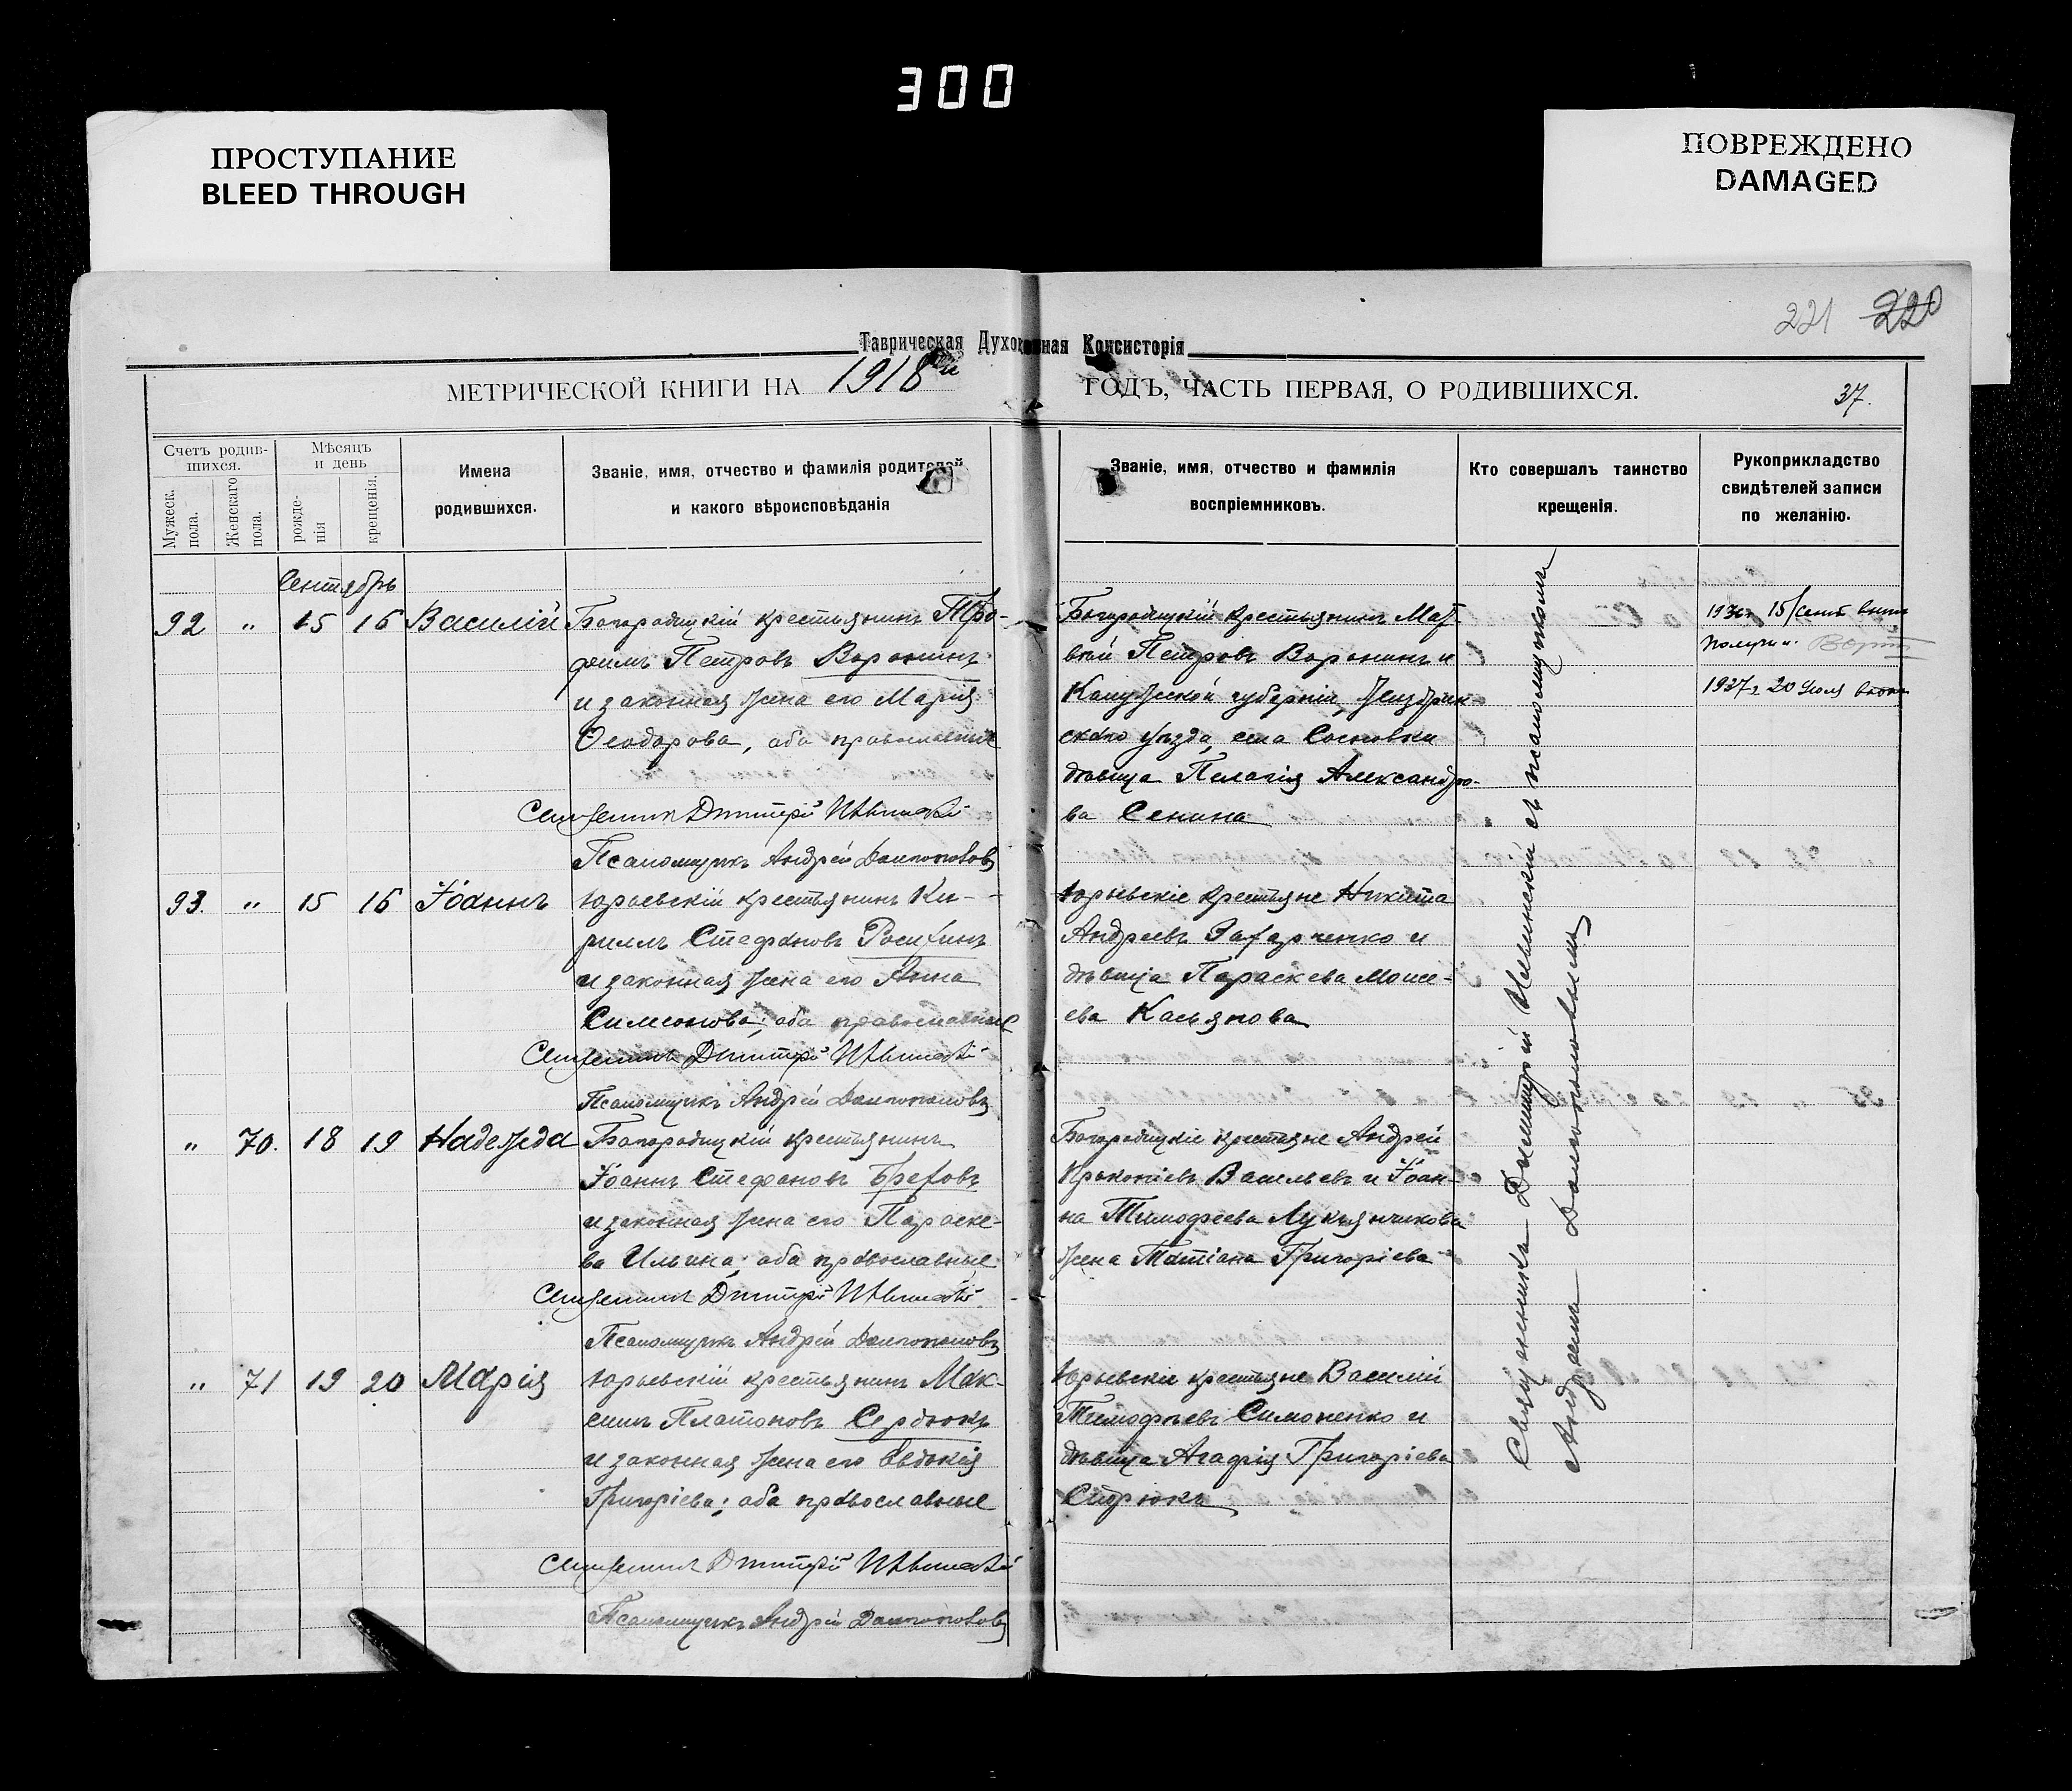 300
ПРОСТУПАНИЕ
BLEED THROUGH
ПОВРЕЖДЕНО
DAMAGED
221 220
Таврическая Духовная Консисторія
МЕТРИЧЕСКОЙ КНИГИ НА 1918й ГОДЪ, ЧАСТЬ ПЕРВАЯ, О РОДИВШИХСЯ.
37.
Счетъ родив-
шихся.
Мужеск.
пола.
Женскаго
пола.
Мѣсяцъ
и день
рожде-
нія
крещенія.
Имена
родившихся.
Званіе, имя, отчество и фамилія родителей
и какого вѣроисповѣданія
Званіе, имя, отчество и фамилія
воспріемниковъ.
Кто совершалъ таинство
крещенія.
Рукоприкладство
свидѣтелей записи
по желанію.
Сентябрь
92 " 15 16 Василій
Богородицкій крестьянинъ Тро-
фимъ Петровъ Воронинъ
и законная жена его Марія
Ѳеодорова, оба православные
Священникъ Дмитрій Ильинскій
Псаломщикъ Андрей Долгополовъ
Богородицкій крестьянинъ Мат-
вѣй Петровъ Воронинъ и
Калужской губерніи, Жиздрин-
скаго уѣзда, села Сосновки
дѣвица Пелагія Александро-
ва Сенина
15/Сент
получил.
1937г. 20 Июля
93. " 15 16 Іоаннъ
Юрьевскій крестьянинъ Ки-
риллъ Стефановъ
и законная жена его Анна
Симеонова; оба православные
Священникъ Дмитрій Ильинскій
Псаломщикъ Андрей Долгополовъ
Юрьевскіе крестьяне Никита
Андреевъ Захарченко и
дѣвица Параскева Моисе-
ева Касьянова
" 70. 18 19 Надежда
Богородицкій крестьянинъ
Іоаннъ Стефановъ Брехов
и законная жена его Параске-
ва Ильина; оба православные
Священникъ Дмитрій Ильинскій
Псаломщикъ Андрей Долгополовъ
Богородицкіе крестьяне Андрей
Прокопіевъ Васильевъ и Іоан-
на Тимофеева Лукьянчикова
жена Татіана Григоріева
" 71 19 20 Марія
Юрьевскій крестьянинъ Мак-
симъ Платоновъ Сердюкъ
и законная жена его Евдокія
Григоріева; оба православные
Священникъ Дмитрій Ильинскій
Псаломщикъ Андрей Долгополовъ
Юрьевскіе крестьяне Василій
Тимофѣевъ Симоненко и
дѣвица Агафія Григоріева
Священникъ Димитрій Ильинскій съ псаломщикомъ
Андреемъ Долгополовымъ